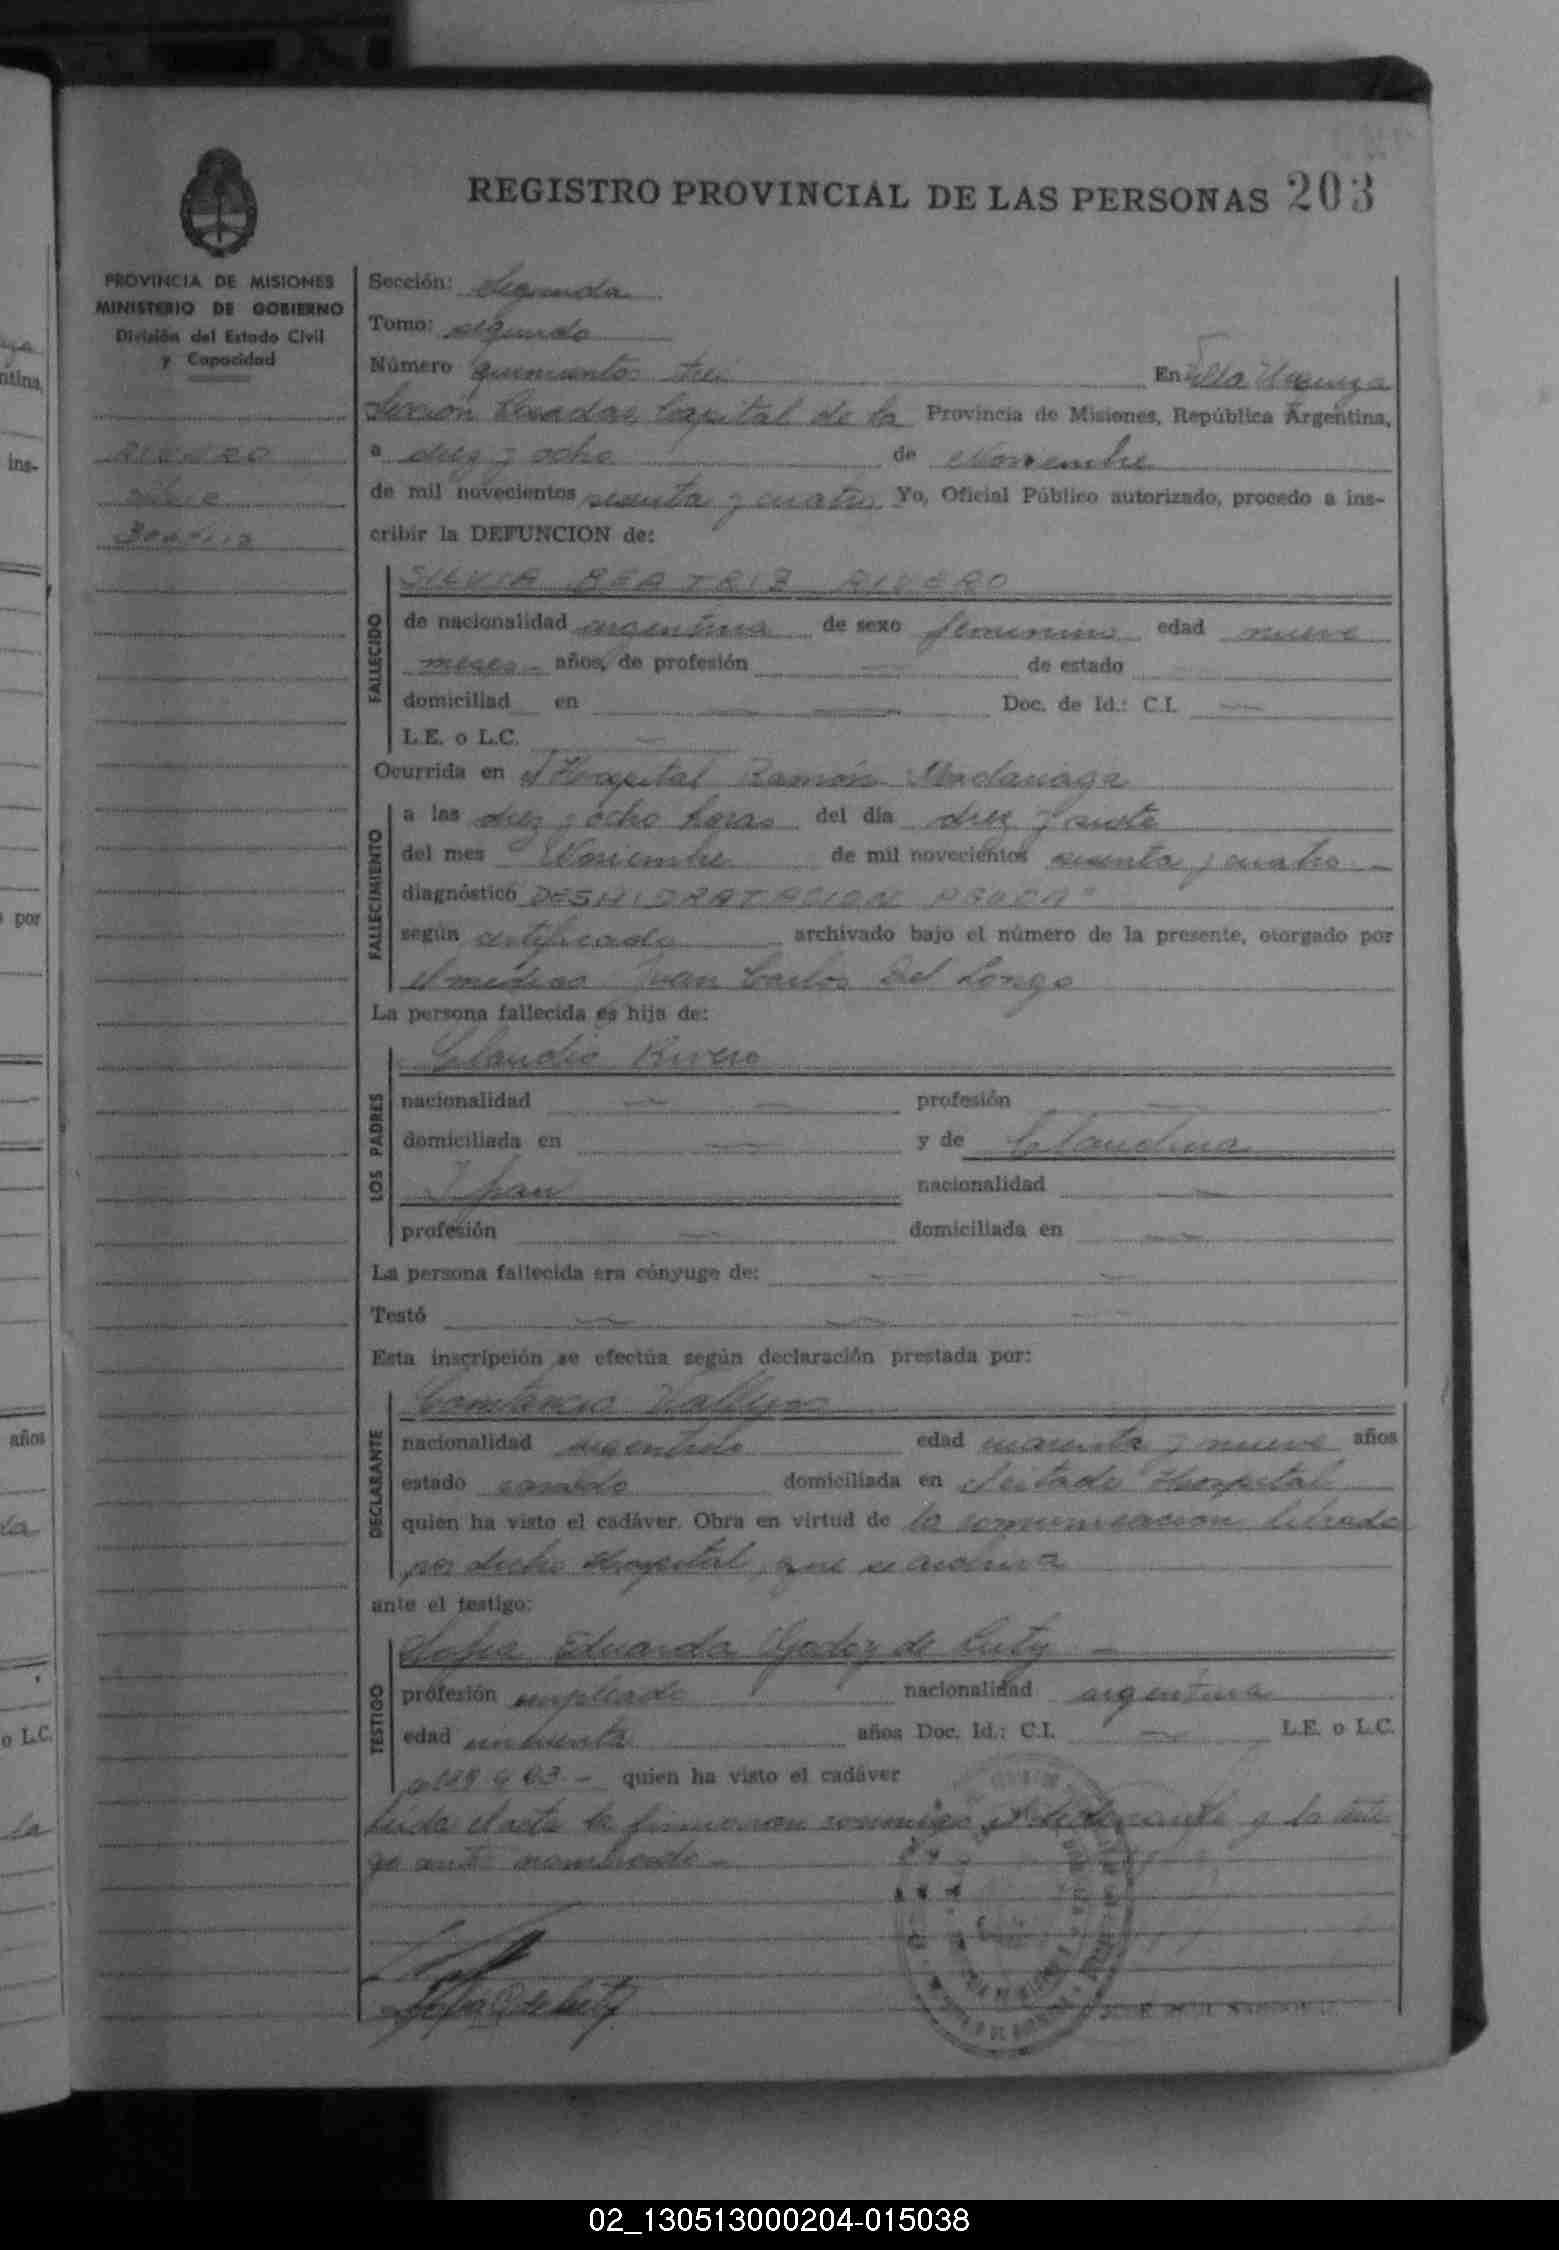 REGISTRO PROVINCIAL DE LAS PERSONAS 203
PROVINCIA DE MISIONES
MINISTERIO DE GOBIERNO
División del Estado Civil
y Capacidad
RIVERO
Silvia
Beatriz
Sección: Segunda
Tomo: segundo
Número quinientos tres En Villa Urquiza
Sección Posadas Capital de la Provincia de Misiones, República Argentina,
a diez y ocho de Noviembre
de mil novecientos sesenta y cuatro Yo, Oficial Público autorizado, procedo a ins-
cribir la DEFUNCION de:
FALLECIDO
SILVIA BEATRIZ RIVERO
de nacionalidad argentina de sexo femenino edad nueve
meses años, de profesión — de estado
domiciliad en — — Doc. de Id.: C.I. —
L.E. o L.C. —
Ocurrida en el Hospital Ramón Madariaga
FALLECIMIENTO
a las diez y ocho horas del día diez y siete
del mes Noviembre de mil novecientos sesenta y cuatro —
diagnóstico DESHIDRATACION AGUDA"
según certificado archivado bajo el número de la presente, otorgado por
el médico Juan Carlos Del Longo
La persona fallecida es hija de:
LOS PADRES
Claudio Rivero
nacionalidad — — profesión —
domiciliada en — y de Claudina
nacionalidad —
profesión — domiciliada en —
La persona fallecida era cónyuge de: — —
Testó — — —
Esta inscripción se efectúa según declaración prestada por:
DECLARANTE
Constancio Vallejos
nacionalidad argentino edad cuarenta y nueve años
estado casado domiciliada en el citado Hospital
quien ha visto el cadáver. Obra en virtud de la comunicacion librada
por dicho Hospital, que se archiva
ante el testigo:
TESTIGO
Sofia Eduarda Godoy de Luty —
profesión empleada nacionalidad argentina
edad cincuenta años Doc. Id.: C.I. — L.E. o L.C.
quien ha visto el cadáver
Leída el acta la firmaron conmigo el declarante y la testi
go ante nombrada —
Sofia G de Luty
02_130513000204-015038